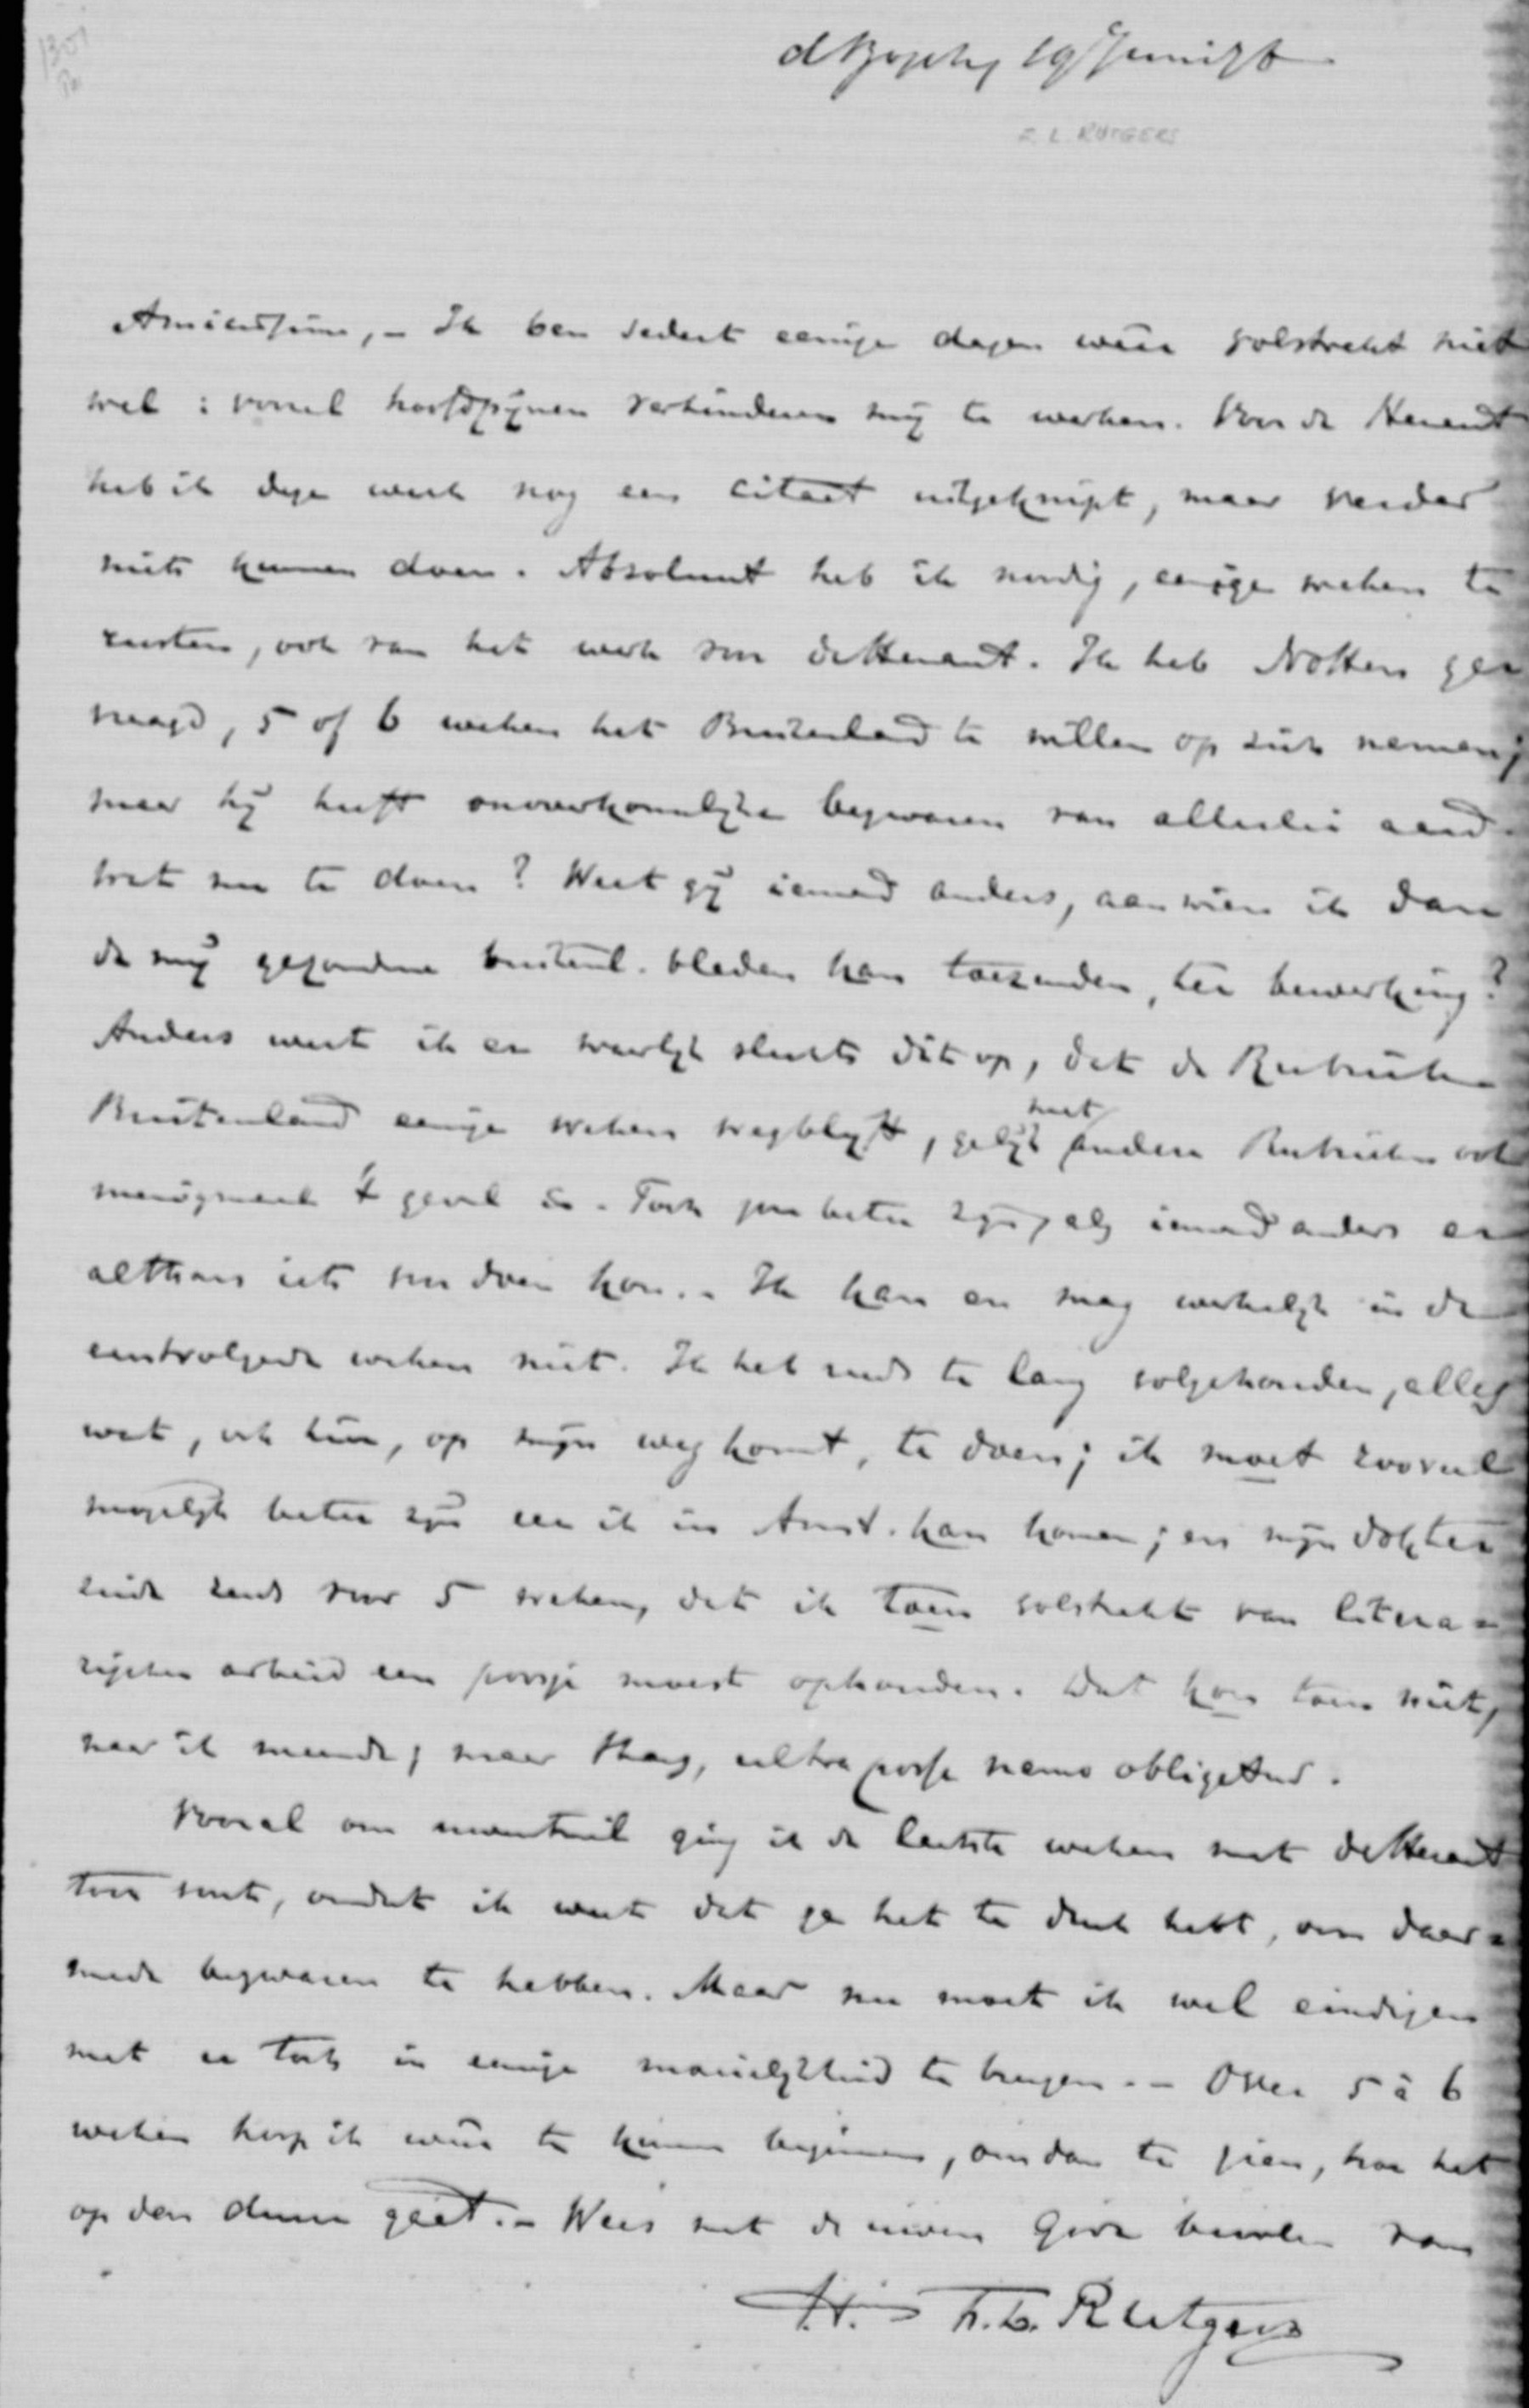 1301
F. L. RUTGERS
Amicissime, - Ik ben sedert eenige dagen weer volstrekt niet
wel: vooral hoofdpijnen verhinderen mij te werken. Voor de Heraut
heb ik deze week nog een citaat uitgeknipt, maar verder
niets kunnen doen. Absoluut heb ik noodig, eenige weken te
rusten, ook van het werk voor de Heraut. Ik heb Notten ge=
vraagd, 5 of 6 weken het Buitenland te willen op zich nemen;
maar hij heeft onoverkomelijke bezwaren van allerlei aard.
Wat nu te doen? Weet gij iemand anders, aan wien ik dan
de mij gezondene buitenl. bladen kan toezenden, ter bewerking?
Anders weet ik er waarlijk slechts dit op, dat de Rubriek
Buitenland eenige weken wegblijft, gelijk met andere Rubrieken ook
menigmaal 't geval is. Toch zou beter zijn, als iemand anders er
althans iets van doen kon. - Ik kan en mag werkelijk in de
eerstvolgende weken niet. Ik heb reeds te lang volgehouden, alles
wat, ook hier, op mijn weg komt, te doen; ik moet zooveel
mogelijk beter zijn eer ik in Amst. kan komen; en mijn dokter
zeide reeds voor 5 weken, dat ik toen volstrekt van litera=
rischen arbeid een poosje moest ophouden. Dat kon toen niet,
naar ik meende; maar thans, ultra posse nemo obligatur.
Vooral om uwentwil ging ik de laatste weken met de Heraut
toch voort, omdat ik weet dat ge het te druk hebt, om daar=
mede bezwaren te hebben. Maar nu moet ik wel eindigen
met u toch in eenige moeielijkheid te brengen. - Over 5 à 6
weken hoop ik weer te kunnen beginnen, om dan te zien, hoe het
op den duur gaat. - Wees met de uwen Gode bevolen van
F. L. Rutgers